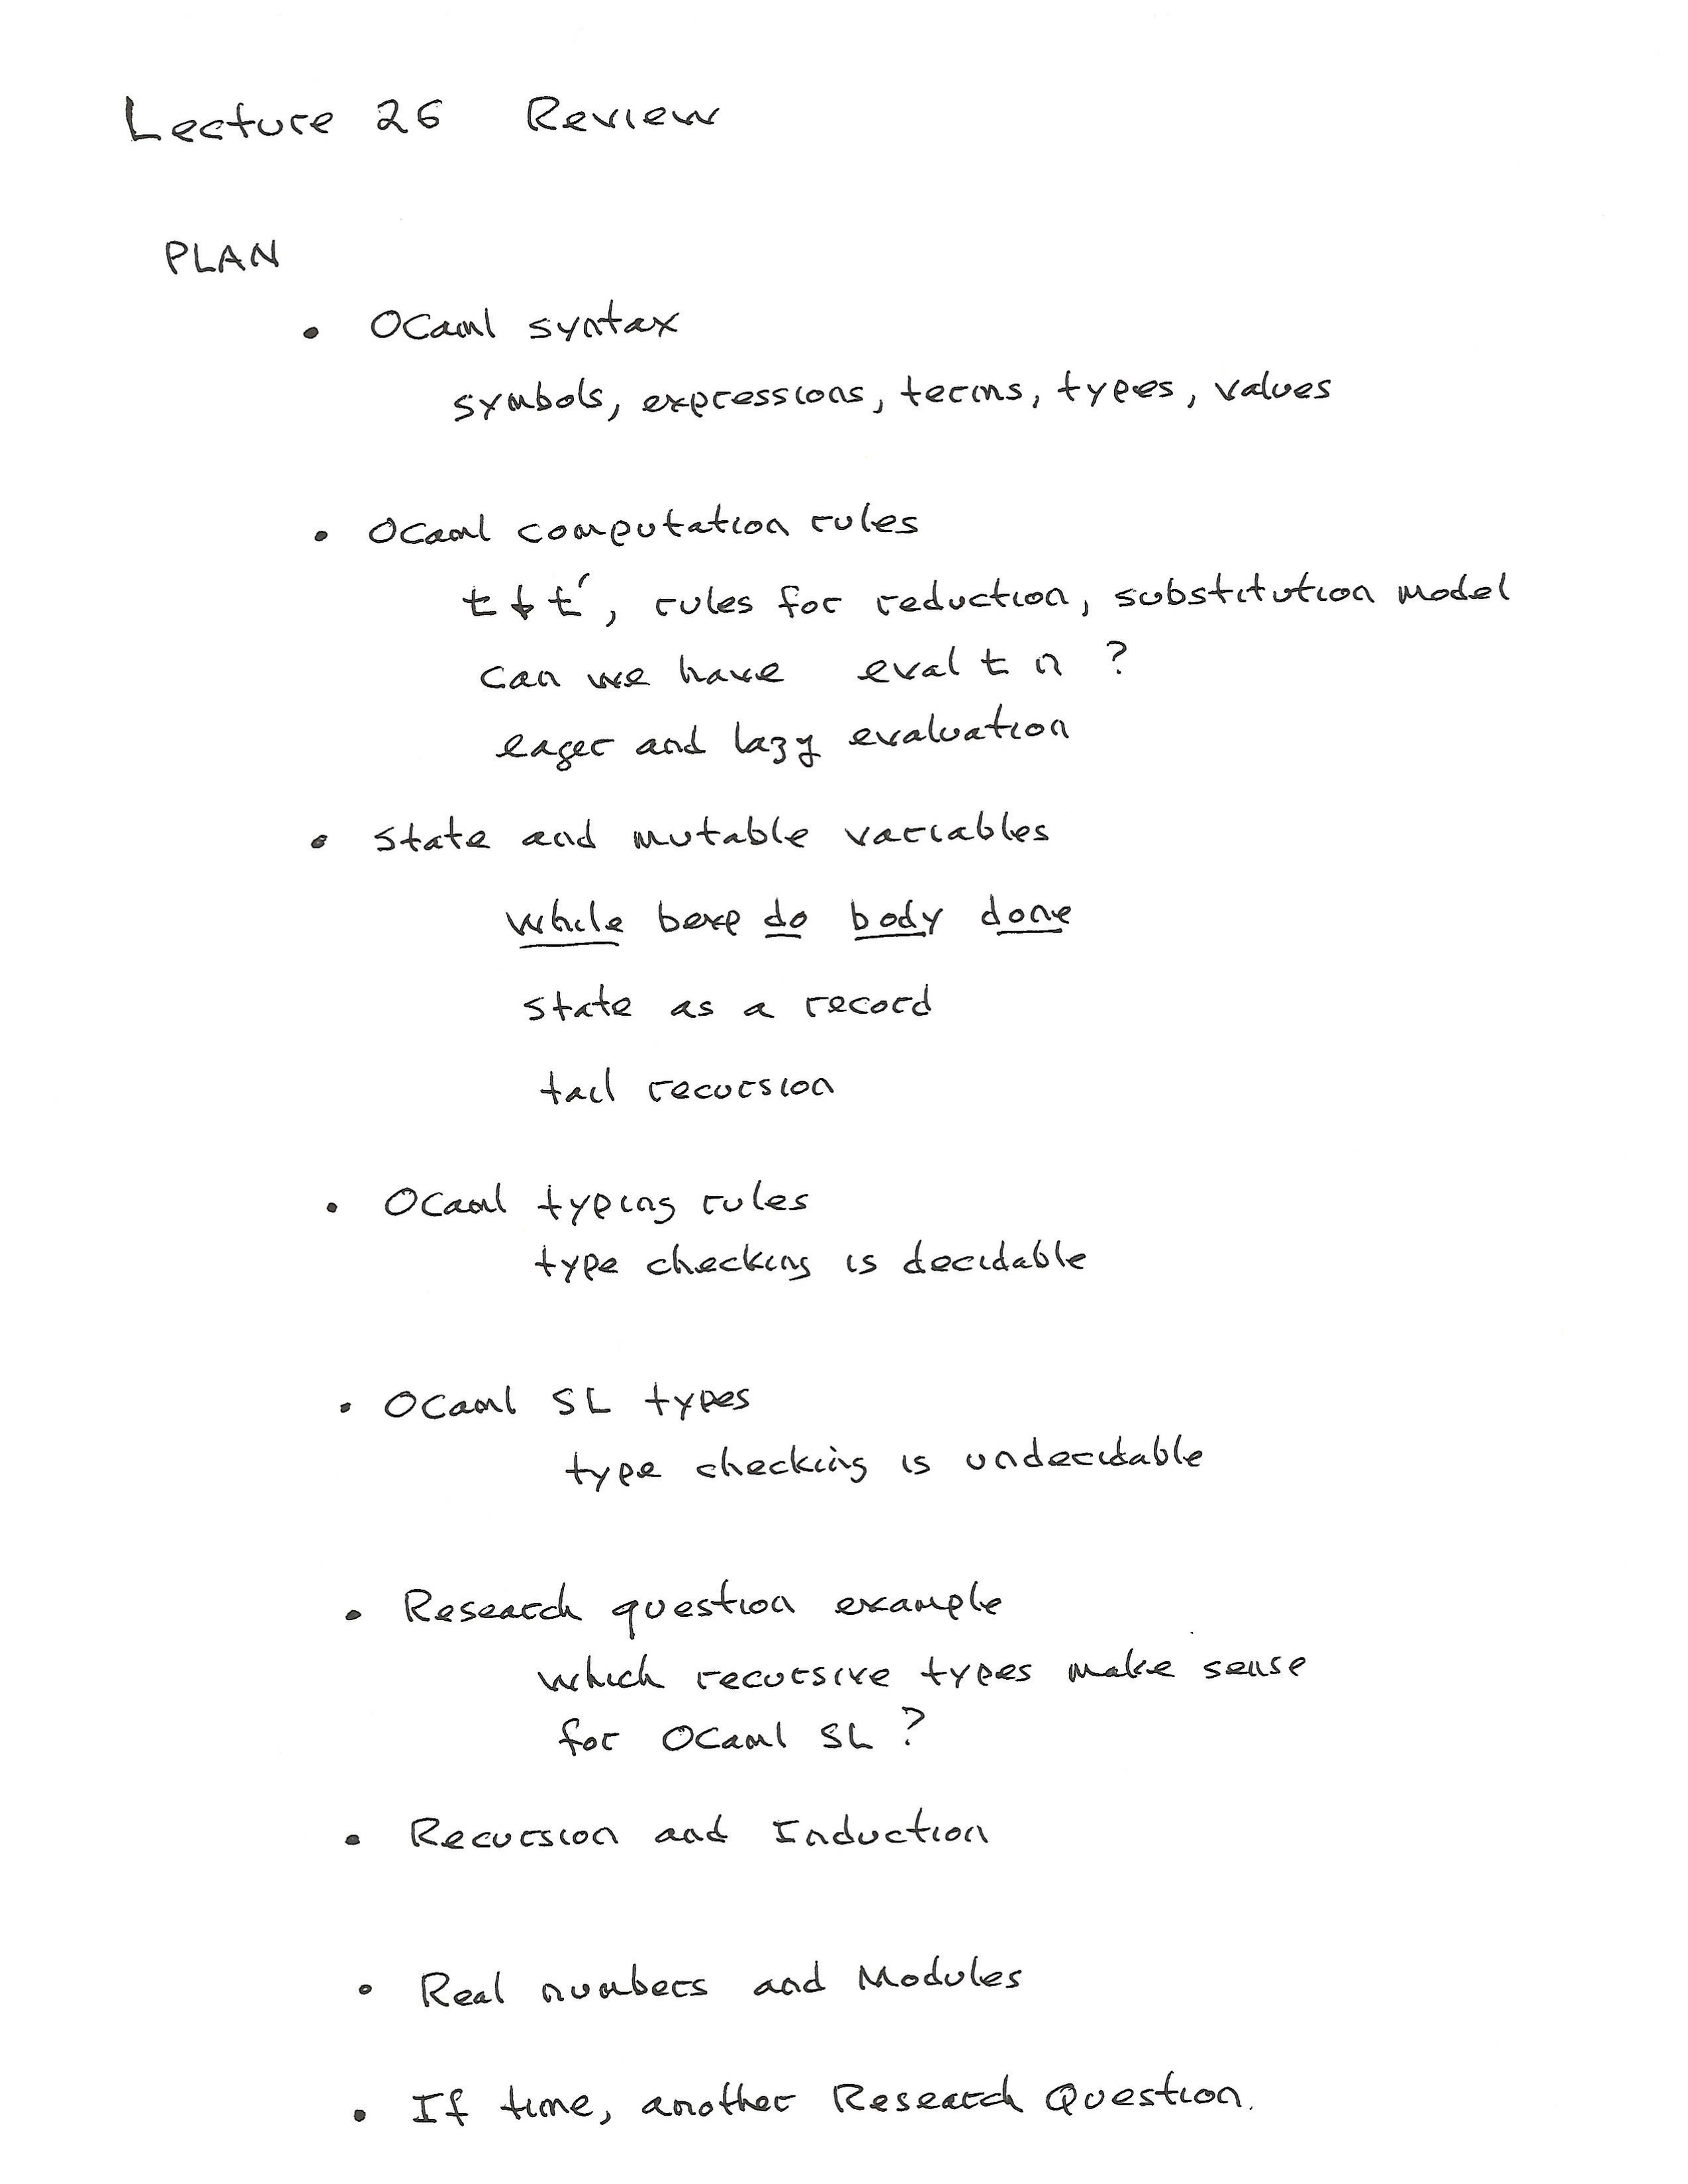 Lecture 26 Review
PLAN
• OCaml syntax
symbols, expressions, terms, types, values
• OCaml computation rules
t ↓ t′, rules for reduction, substitution model
can we have eval t n ?
eager and lazy evaluation
• State and mutable variables
while bexp do body done
state as a record
tail recursion
• OCaml typing rules
type checking is decidable
• OCaml SL types
type checking is undecidable
• Research question example
which recursive types make sense
for OCaml SL ?
• Recursion and Induction
• Real numbers and Modules
• If time, another Research Question.